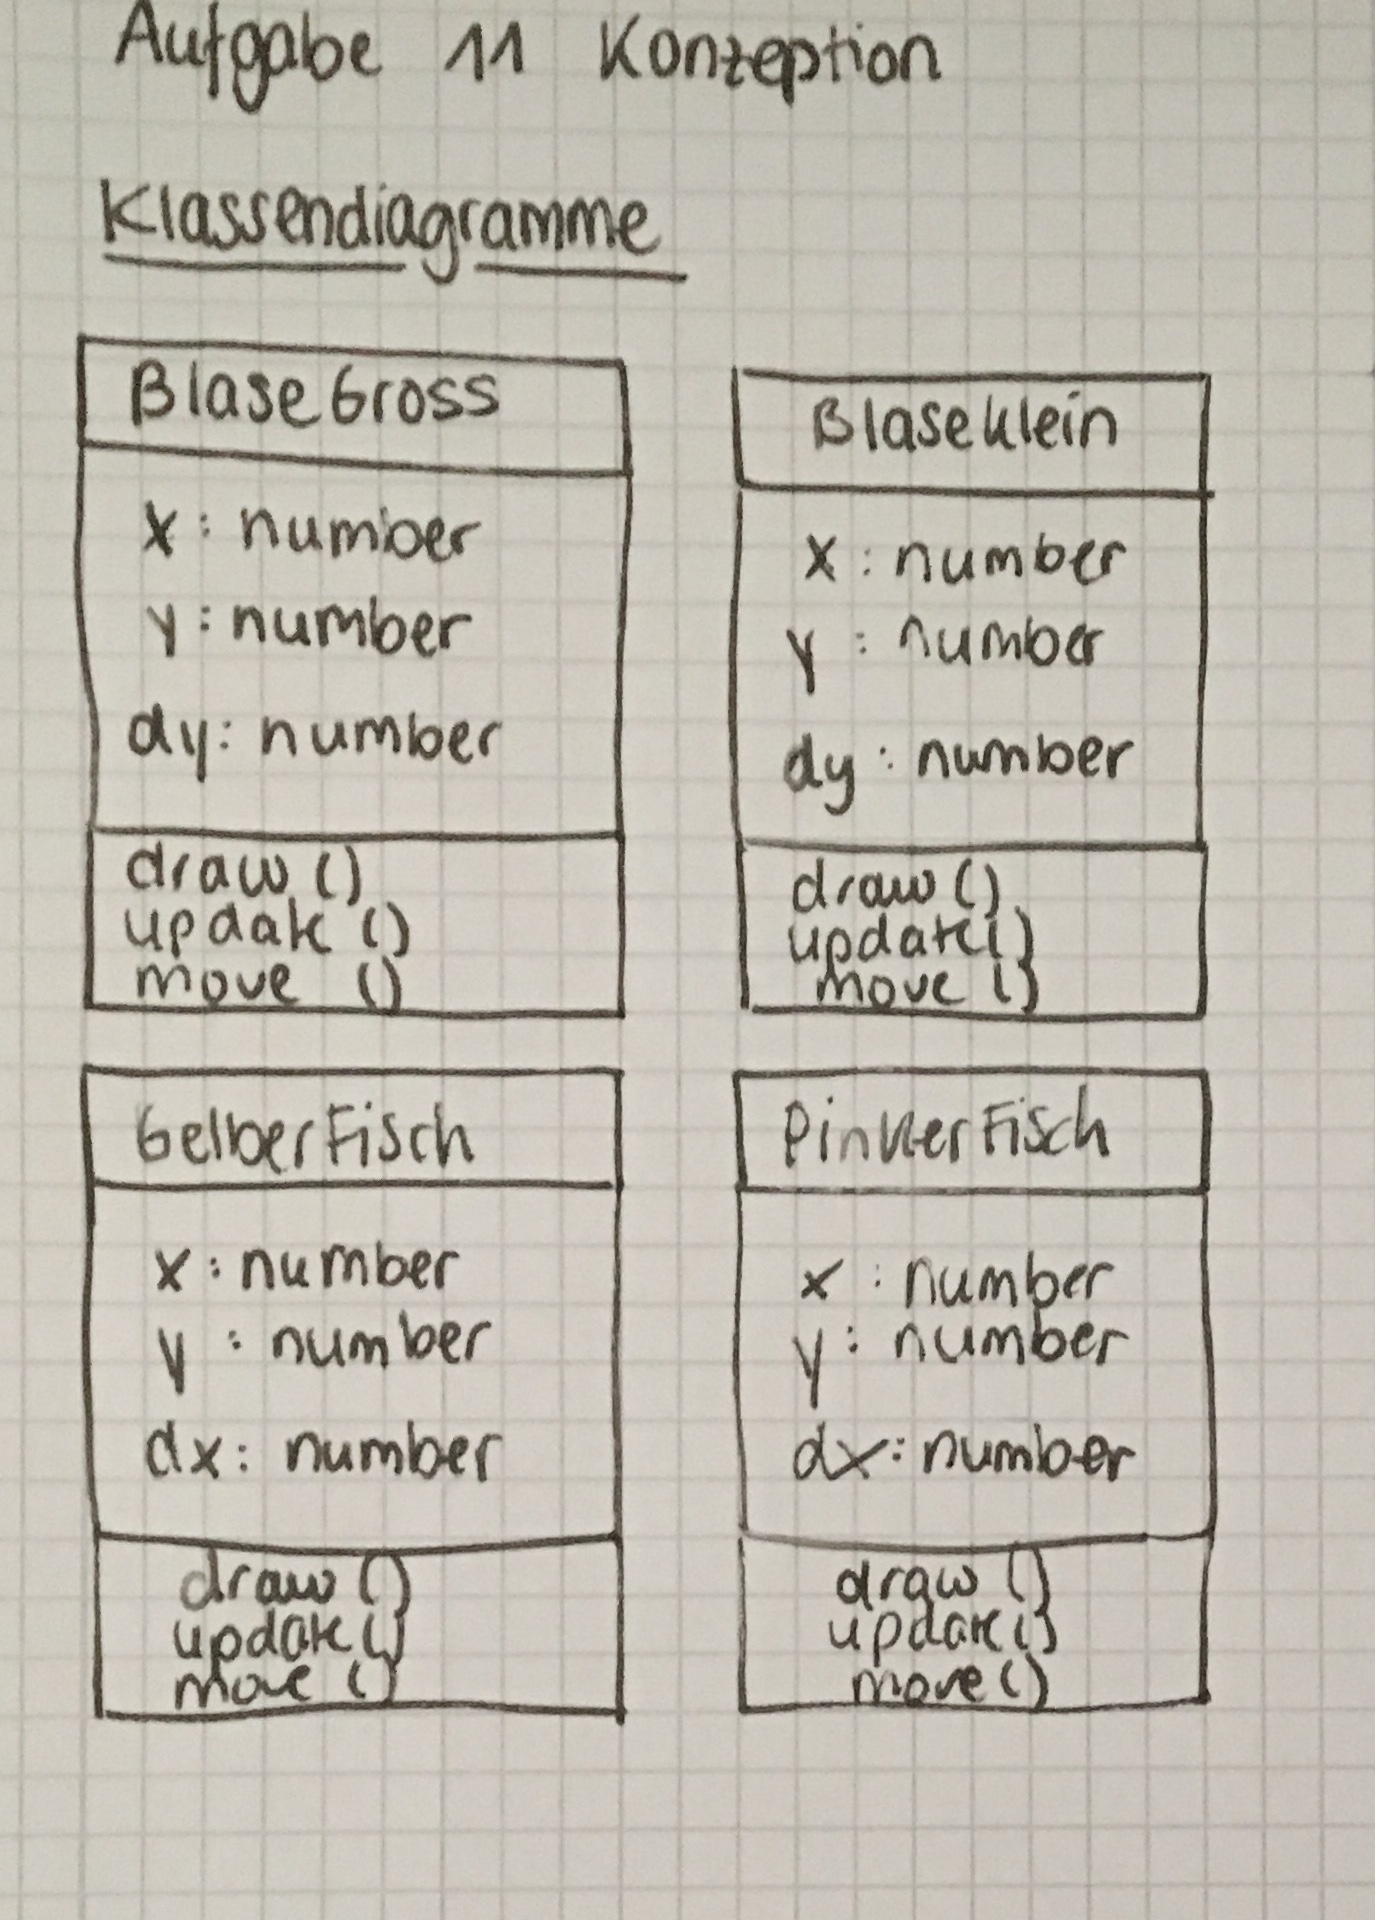 Aufgabe 11 Konzeption
Klassendiagramme
BlaseGross
x: number
y: number
dy: number
draw ()
update ()
move ()
BlaseKlein
x: number
y: number
dy: number
draw ()
update ()
move ()
GelberFisch
x: number
y: number
dx: number
draw ()
update ()
move ()
PinkerFisch
x: number
y: number
dx: number
draw ()
update ()
move ()